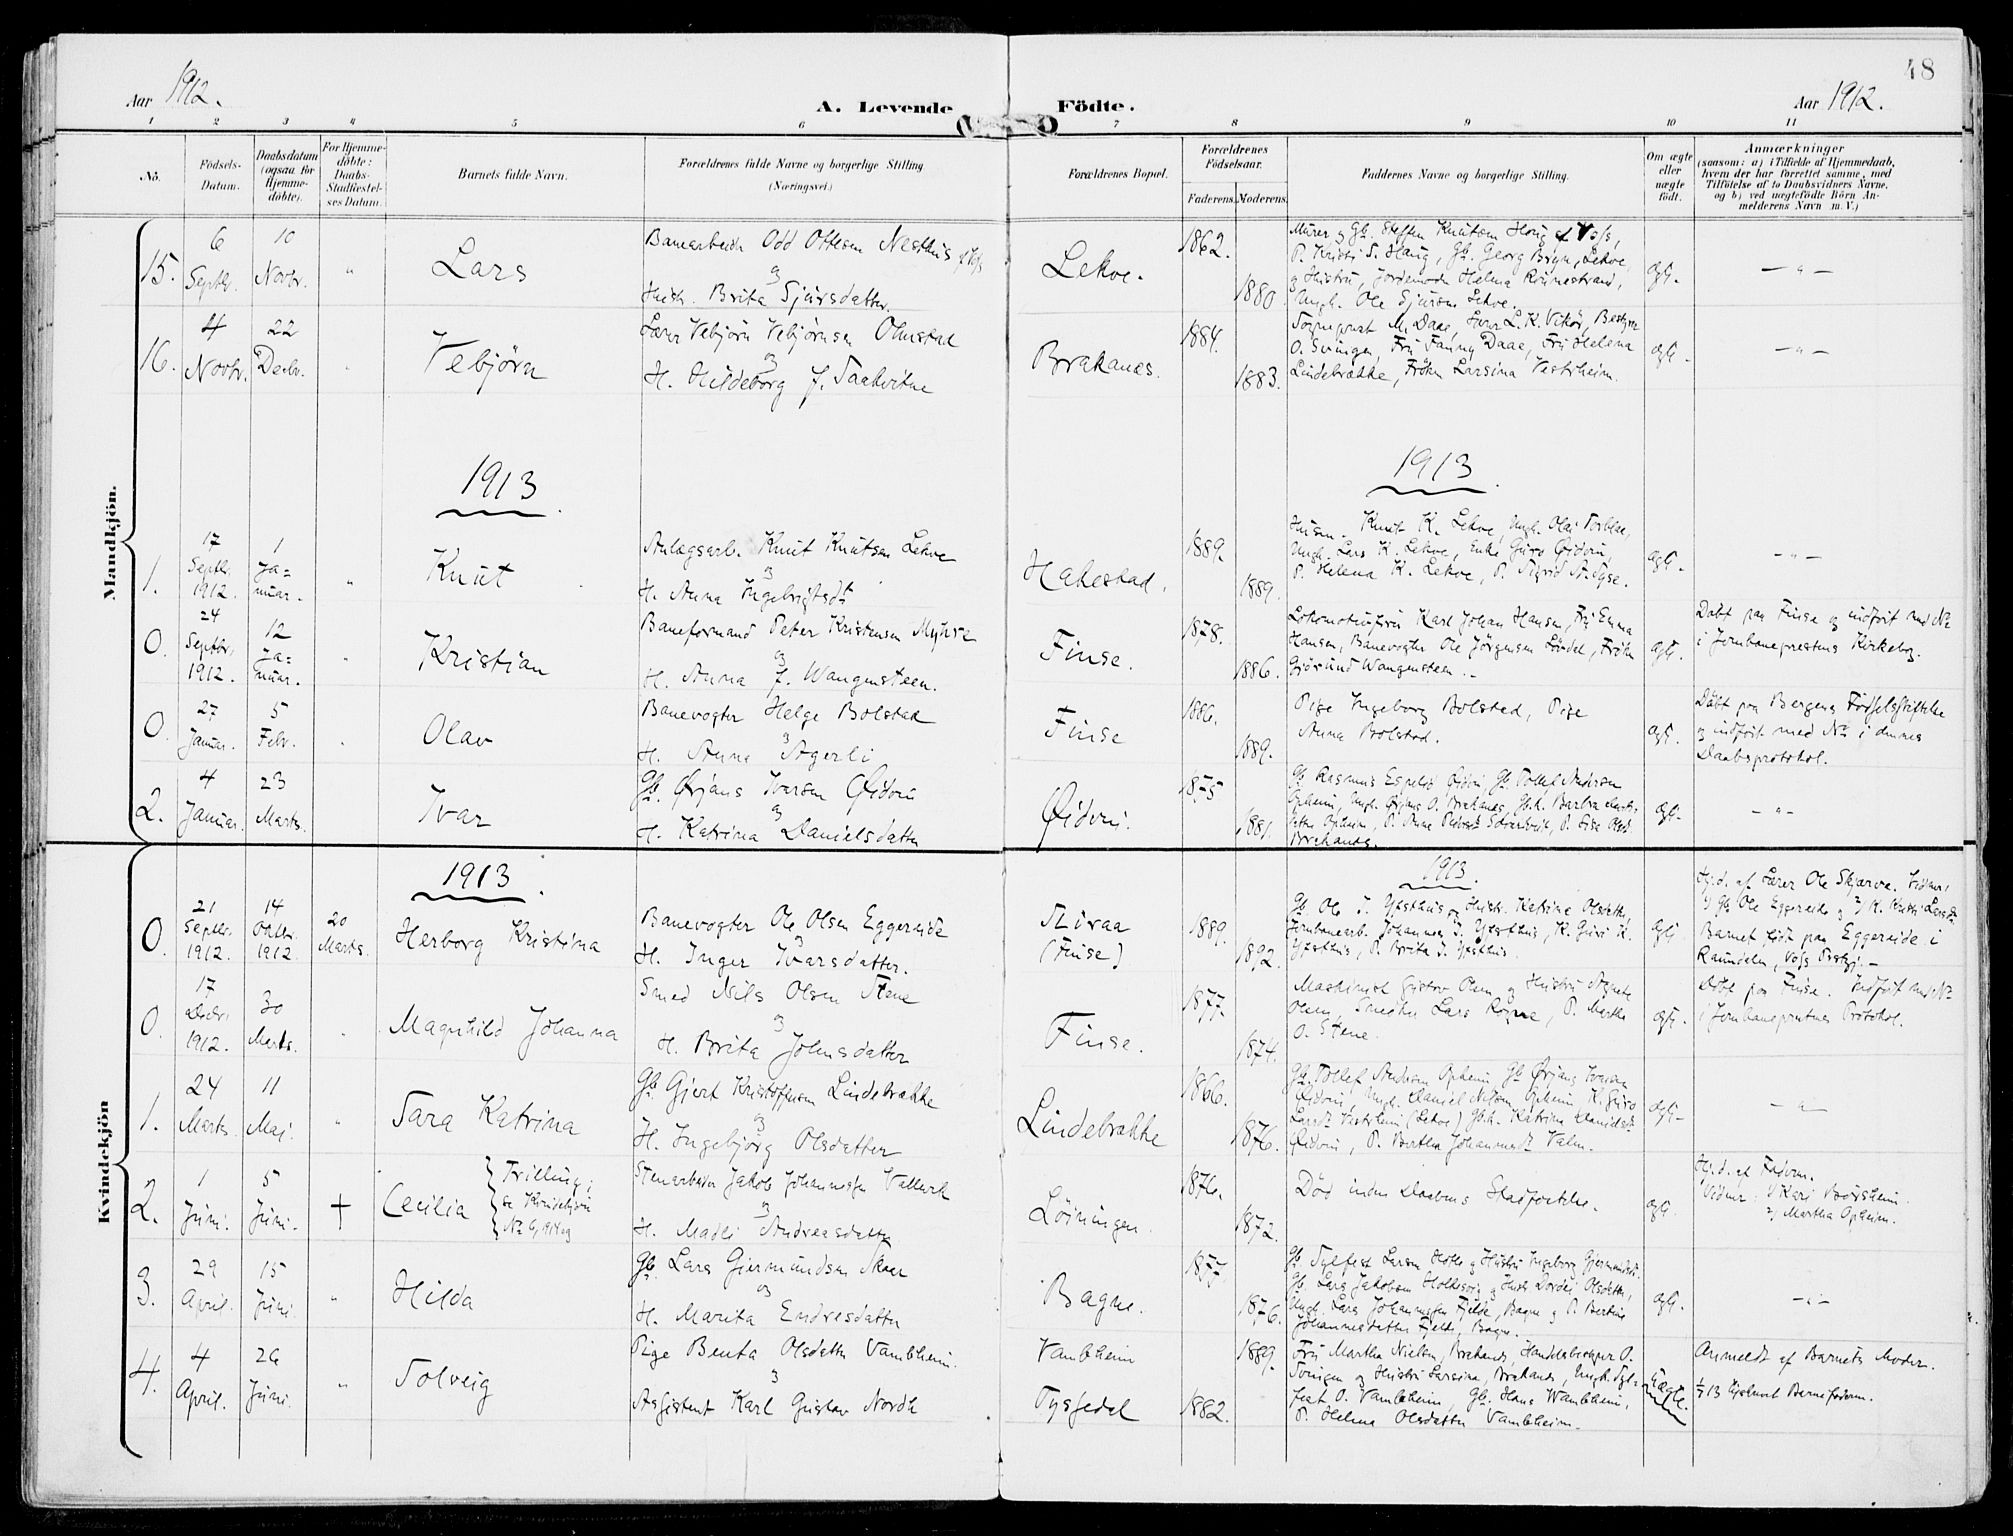 48
Aar 1912.
A. Levende Födte.
Aar 1912.
1 2 3 4 5 6 7 8 9 10 11
No.
Födsels-Datum.
Daabsdatum (ogsaa for Hjemme-döbte).
For Hjemme-döbte: Daabs-Stadfæstel-ses Datum.
Barnets fulde Navn.
Forældrenes fulde Navne og borgerlige Stilling (Næringsvei.)
Forældrenes Bopæl.
Forældrenes Födselsaar.
Faderens. Moderens.
Faddernes Navne og borgerlige Stilling.
Om ægte eller uægte födt.
Anmærkninger
(saasom: a) i Tilfælde af Hjemmedaab,
hvem der har forrettet samme, med
Tilföielse af to Daabsvidners Navne,
og b) ved uægtefödte Börn An-
melderens Navn m. V.)
Mandkjön.
15. 6 Septbr. 10 Novbr. " Lars
Banearbeider Odd Ottesen Nesthus
og
Hustr. Brita Sjursdatter.
Lekve. 1862. 1880.
Murer og Gb. Steffen Knutsen Haug af Vofs,
P. Kristi S. Haug, Gb. Georg Bryn, Lekve,
og Hustru, Jordemoder Helena Rönnestrand,
Ungk. Ole Sjursen Lekve.
ægt. — " —
16. 4 Novbr. 22 Decbr. " Vebjörn
Lærer Vebjörn Vebjörnsen Olmstad
og
H. Hildeborg f. Saakvitne
Brakanes. 1884. 1883.
Sogneprest M. Daae, Lærer L. K. Vikör, Bestyrer
O. Svingen, Fru Fanny Daae, Fru Helena
Lindebrække, Fröken Larsina Vestrheim.
ægt. — " —
1913
1913.
1. 17 Septbr. 1912. 1 Ja=nuar. " Knut
Anlægsarb. Knut Knutsen Lekve
og
H. Anna Ingebrigtsdt
Hakestad. 1889. 1889.
Husm. Knut K. Lekve, Ungk. Olav Torblaa,
Ungk. Lars K. Lekve, Enke Guro Øidvin,
P. Helena K. Lekve, P. Sigrid
ægt. — " —
0. 24 Septbr. 1912. 12 Ja=nuar. " Kristian
Baneformand Peter Kristensen Myhre
og
H. Anna f. Wangensteen.
Finse. 1878. 1886.
Lokomotivförer Karl Johan Hansen, Fru Emma
Hansen, Banevogter Ole Jörgensen Lövdal, Fröken
Gjörund Wangensteen.
ægt.
Döbt paa Finse og indfört med No
i Jernbaneprestens Kirkebog.
0. 27 Januar. 5 Febr. " Olav
Banevogter Helge Bolstad
og
H. Anna Agerli
Finse 1886. 1889.
Pige Ingeborg Bolstad, Pige
Anna Bolstad.
ægt.
Döbt paa Bergens Födselsstiftelse
og indfört med No i dennes
Daabsprotokol.
2. 4 Januar. 23 Marts. Ivar
Gb. Ørjans Iversen Øidvin
og
H. Katrina Danielsdatter
Øidvin. 1875 1881.
Gb. Rasmus Espelid Øidvin, Gb. Tollef Andersen
Opheim, Ungk. Ørjans O. Brakanes, Gbk. Barbra
Opheim, P. Anna
Brakanes.
ægt. — " —
Kvindekjön
1913.
1913.
0. 21 Septbr. 1912. 14 Oktbr. 1912. 20 Marts. Herborg Kristina
Banevogter Ole Olsen Eggereide
og
H. Inger Ivarsdatter.
Tliraa
(Finse) 1889. 1892.
Gb. Ole I. Ystethus og Hustr. Katrine Olsdatter,
Jernbanearb. Johannes I. Ystethus, K. Guri K.
Ystethus, P. Brita I. Ystethus.
ægt.
Hj.d. af Lærer Ole Skjærve. Vidner:
1) Gb. Ole Eggereide og 2) K. Larsdt.
Barnet födt paa Eggereide i
Raundalen, Vofs Prstgj. —
0. 17 Decbr. 1912. 30 Marts. " Magnhild Johanna
Smed Nils Olsen Stene
og
H. Brita Johnsdatter
Finse. 1877. 1874.
Maskinist Gustav Olsen og Hustru Agnete
Olsen, Smed Lars Rogne, P. Martha
O. Stene.
ægt.
Döbt paa Finse. Indfört med No
i Jernbaneprestens Protokol.
1. 24 Marts. 11 Mai. " Sara Katrina
Gb. Gjert Kristoffersen Lindebrække
og
H. Ingebjörg Olsdatter
Lindebrække 1866. 1876.
Gb. Tollef Andersen Opheim Gb. Ørjans Iversen
Øidvin, Ungk. Daniel Nilsen Opheim K. Guro
Larsdt. Vestrheim (Lekve) Gbk. Katrina Danielsdt.
Øidvin, P. Bertha Johannesdt. Valen.
ægt. — " —
2. 1 Juni. 5 Juni. † Cecilia
Trilling;
se Kvindekjön
No 6, 1914 og
Stenarbeider Jakob Johannesen Vallevik
og
H. Madli Andreasdatter
Löiningen. 1876. 1872.
Död inden Daabens Stadfæstelse.
ægt.
Hj.d. af Faderen.
Vidner: 1) Kari Börsheim.
2) Martha Opheim.
3. 29 April. 15 Juni. " Hilda
Gb. Lars Gjermundsen Skaar
og
H. Marita Endresdatter
Bagne. 1877. 1876.
Gb. Sylfest Larsen Holte og Hustru Ingeborg Gjermundsdt.
Gb. Lars Jakobsen Holtesvig og Hustr. Dordei Olsdatter,
Ungk. Lars Johannessen Fjelde, Bagne og P. Bertine
Johannesdatter Fjelde, Bagne.
ægt. — " —
4. 4 April. 26 Juni. " Solveig
Pige Benta Olsdatter Vambheim.
og
Assistent Karl Gustav Nordli
Vambheim
Tyssedal 1882. 1889.
Fru Martha Nielsen, Brakanes, Handelsbestyrer O.
Svingen og Hustru Larsina, Brakanes, Ungk. Syl=
fest O. Vambheim, Gb. Hans Vambheim,
P. Helena Olsdatter Vambheim.
Uægte.
Anmeldt af Barnets Moder.
13